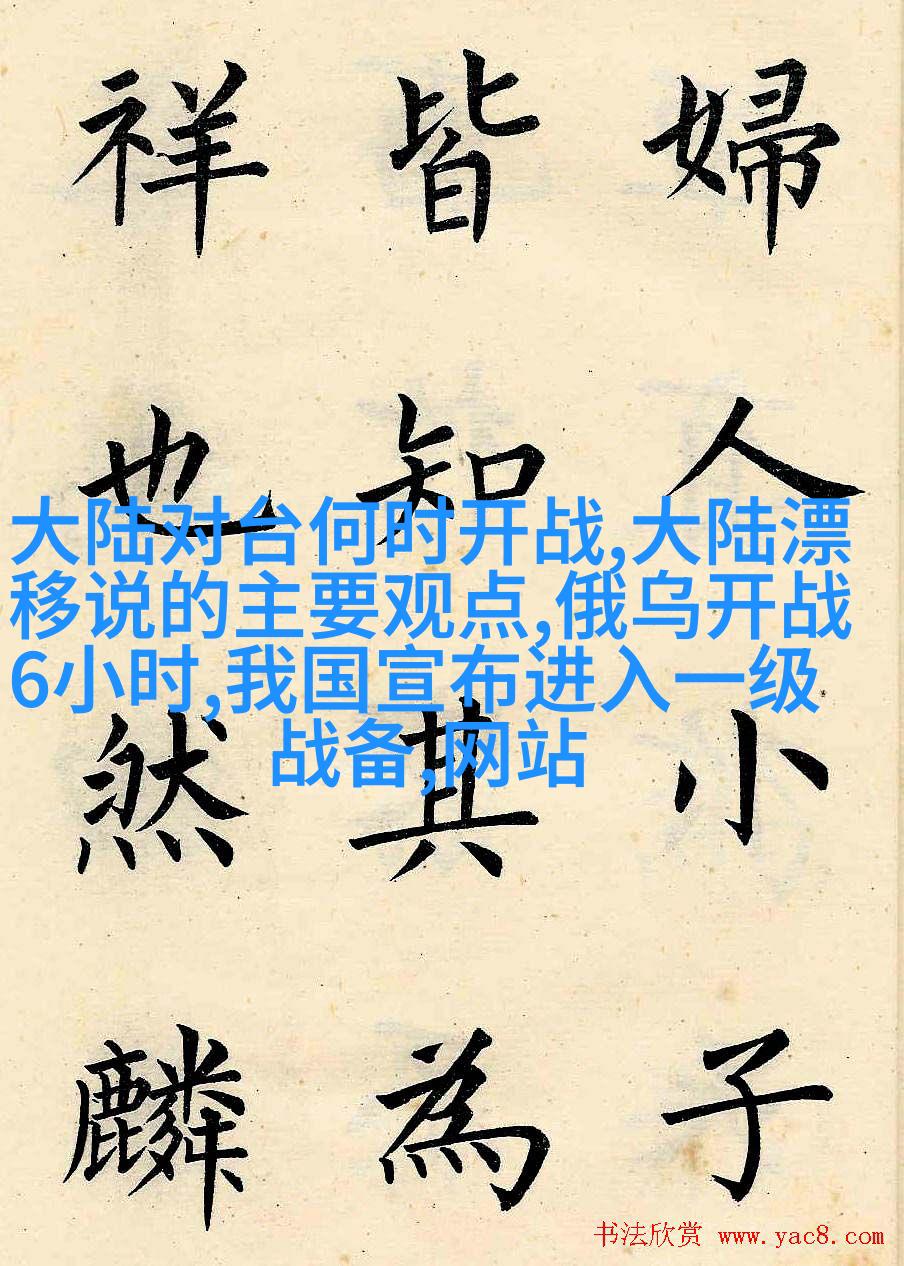 婦人小子
皆知其為
祥也然麟
大陆对台何时开战,大陆漂
移说的主要观点,俄乌开战
6小时,我国宣布进入一级
战备,网站
书法欣赏 www.yac8.com